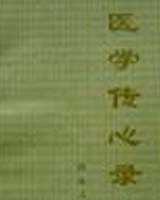 医学传心录